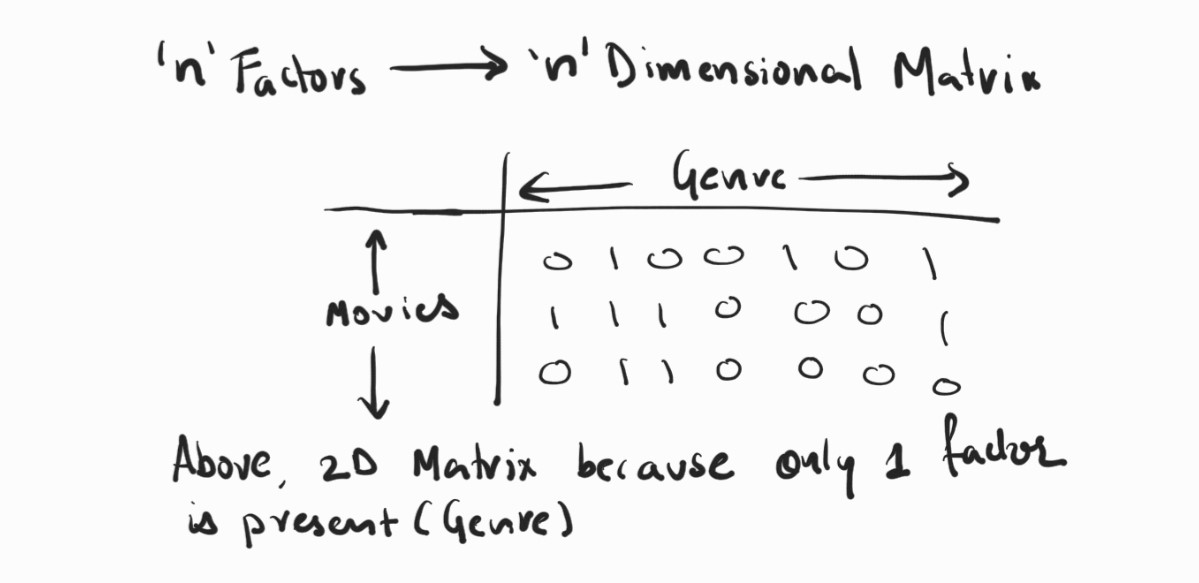 'n' Factors → 'n' Dimensional Matrix
← Genre →
0 1 0 0 1 0 1
Movies
1 1 1 0 0 0 1
0 1 1 0 0 0 0
Above, 2D Matrix because only 1 factor
is present (Genre)